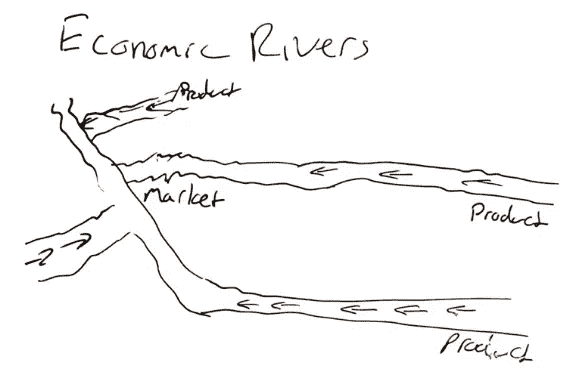 Economic Rivers
Product
Market
Product
Product